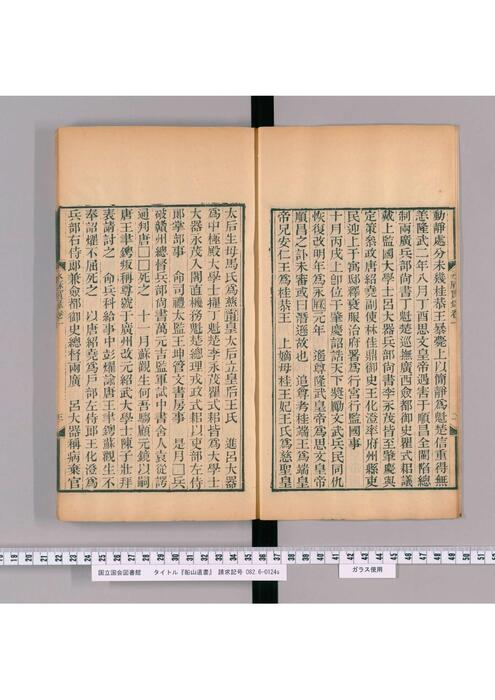 動靜處分未幾桂恭王暴薨上以簡靜爲魁楚倍重得無
恙隆武二年八月丁酉思文皇帝遇害于順昌全閩陷總
制兩廣兵部尚書丁魁楚巡撫廣西僉都御史瞿式耜議
戴上監國大學士呂大器兵部尚書李永茂皆至肇慶與
定策翁政唐紹堯副使林佳鼎御史王化澄率府州縣吏
民迎上于寓邸釋衰服治府署爲行宮行監國事
十月丙戌上卽位于肇慶詔誥天下奬勵文武兵民同仇
恢復改明年爲永曆元年 遙尊隆武皇帝爲思文皇帝
順昌之訃未審或曰潛遜故也 追尊考桂端王爲端皇
帝兄安仁王爲桂恭王 上嫡母桂王妃王氏爲慈聖皇
太后生母馬氏爲慈甯皇太后立皇后王氏 進呂大器
爲中極殿大學士擢丁魁楚李永茂瞿式耜皆爲大學士
大器永茂入閣直機務魁楚總理戎政式耜以吏部左侍
郎掌部事 命司禮太監王坤管文書房事 是月□兵
破贛州總督兵部尚書萬元吉監軍試中書舍人袁從諤
通判唐□□死之 十一月蘇觀生何吾騶顧元鏡以嗣
唐王聿𨮁叛稱尊號于廣州改元紹武大學士陳子壯拜
表請討之 命兵科給事中彭燿諭唐王聿𨮁蘇觀生不
奉詔燿不屈死之 以唐紹堯爲戶部左侍郎王化澄爲
兵部右侍郎兼僉都御史總督兩廣 呂大器稱病棄官
国立国会図書館 タイトル『船山遺書』 請求記号 082.6-0124s
ガラス使用